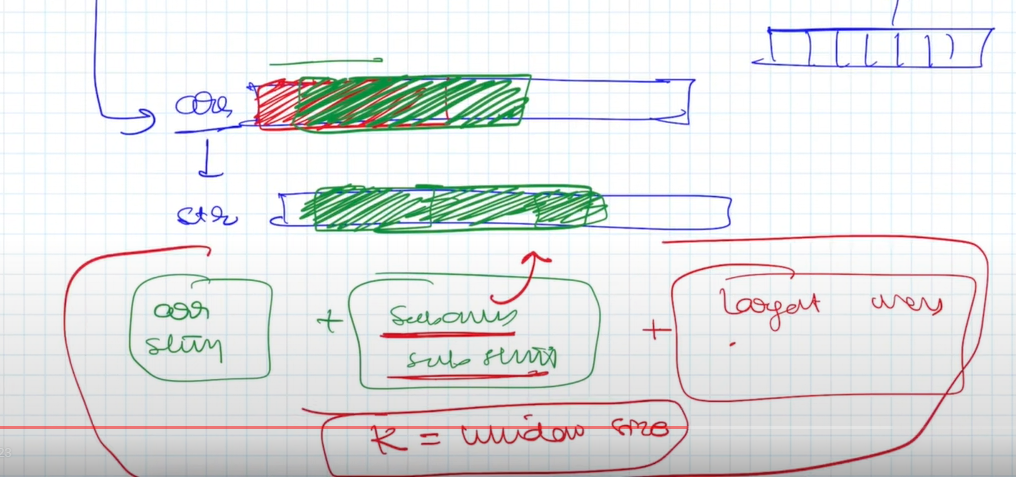 arr
str
arr
string
+
subarray
substring
+
largest
K = window size